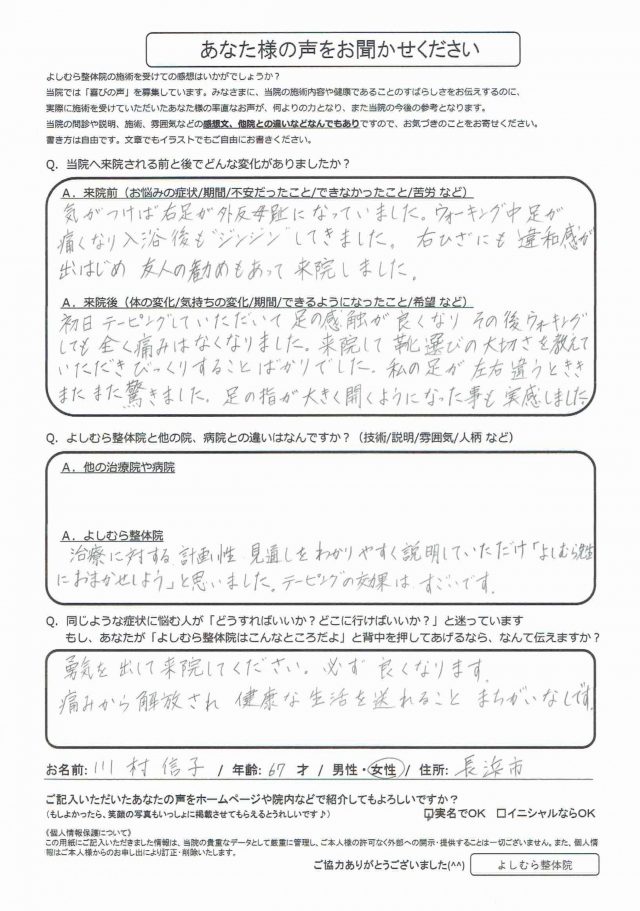 あなた様の声をお聞かせください
よしむら整体院の施術を受けての感想はいかがでしょうか？
当院では「喜びの声」を募集しています。みなさまに、当院の施術内容や健康であることのすばらしさをお伝えするのに、
実際に施術を受けていただいたあなた様の率直なお声が、何よりの力となり、また当院の今後の参考となります。
当院の問診や説明、施術、雰囲気などの感想文、他院との違いなどなんでもありですので、お気づきのことをお寄せください。
書き方は自由です。文章でもイラストでもご自由にお書きください。
Q．当院へ来院される前と後でどんな変化がありましたか？
A．来院前（お悩みの症状/期間/不安だったこと/できなかったこと/苦労 など）
気がつけば右足が外反母趾になっていました。ウォーキング中足が
痛くなり入浴後も"ジンジン"してきました。 右ひざにも違和感が
出はじめ 友人の勧めもあって 来院しました。
A．来院後（体の変化/気持ちの変化/期間/できるようになったこと/希望 など）
初日 テーピングしていただいて 足の感触が 良くなり その後ウォーキング
しても 全く痛みはなくなりました。来院して 靴選びの大切さを教えて
いただき びっくりすること ばかりでした。 私の足が 左右違うとき
またまた驚きました。足の指が大きく開くようになった事も実感しました
Q．よしむら整体院と他の院、病院との違いはなんですか？（技術/説明/雰囲気/人柄 など）
A．他の治療院や病院
A．よしむら整体院
治療に対する 計画性 見通しをわかりやすく説明していただけ「よしむら先生
におまかせしよう」と思いました。テーピングの効果は すごいです。
Q．同じような症状に悩む人が「どうすればいいか？どこに行けばいいか？」と迷っています
もし、あなたが「よしむら整体院はこんなところだよ」と背中を押してあげるなら、なんて伝えますか？
勇気を出して来院してください。必ず 良くなります。
痛みから解放され 健康な生活を送れること まちがいなしです。
お名前: 川村信子 / 年齢: 67 才 / 男性・女性 / 住所: 長浜市
ご記入いただいたあなたの声をホームページや院内などで紹介してもよろしいですか？
（もしよかったら、笑顔の写真もいっしょに掲載させてもらえるとうれしいです♪） ☑実名でOK □イニシャルならOK
《個人情報保護について》
この用紙にご記入いただきました情報は、当院の貴重なデータとして厳重に管理し、ご本人様の許可なく外部への開示・提供することは一切ございません。また、個人情
報はご本人様からのお申し出により訂正・削除いたします。
ご協力ありがとうございました(^^) よしむら整体院